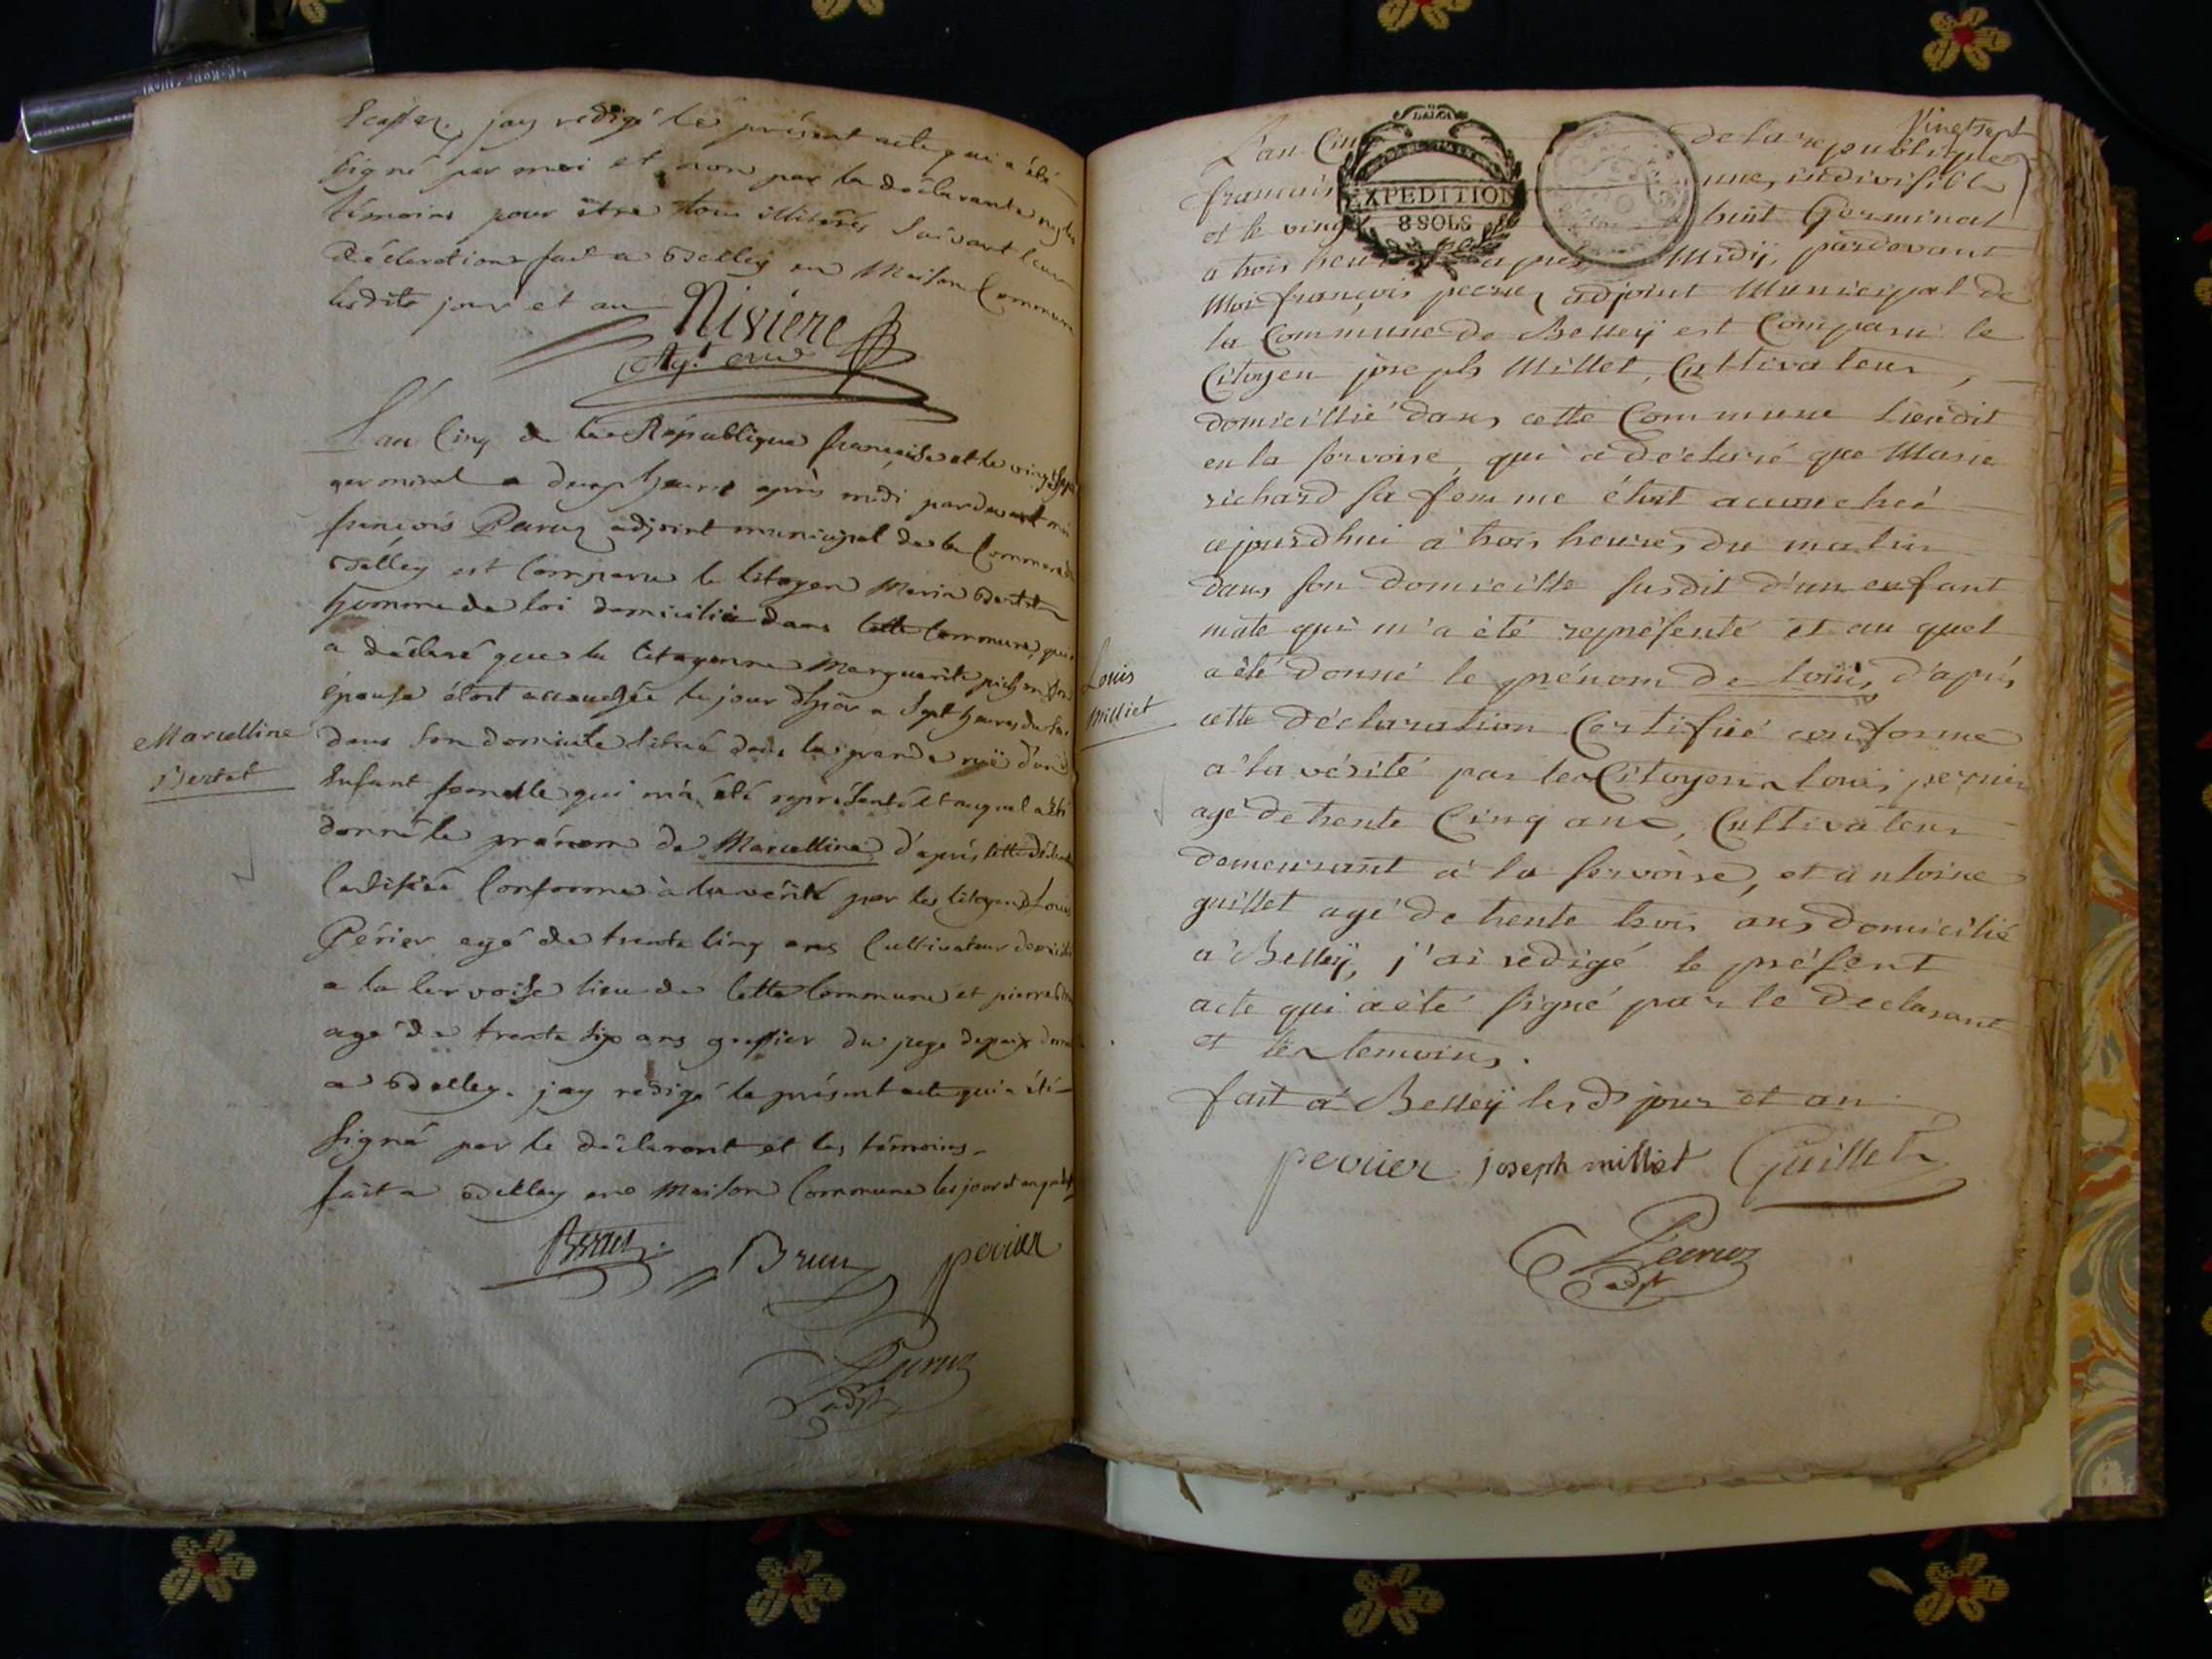 jay redigé le présent acte qui a été
signé par moi et non par la déclarante ny les
témoins pour être tous illitérés suivant leur
déclaration fait a Belley en Maison Commune
lesdits jour et an
Niviere
Agt
L'an Cinq de la République française et le vingt sept
germinal a deux heures après midi pardevant moi
françois Parra adjoint municipal de la Commune de
Belley est Comparu le Citoyen Marin Bertet
homme de loi domicilié dans cette Commune, qui
a déclaré que la Citoyenne Marguerite pichon son
épouse étoit accouchée le jour d'hier a Sept heures du
dans son domicile situé dans la grande ruë d'un
Enfant femelle qui m'a été représenté et auquel a été
donné le prénom de Marcelline d'après cette
Certifiée Conforme à la vérité par les Citoyens Louis
Périer agé de trente Cinq ans Cultivateur
a la Servoise lieu de Cette Commune et pierre
agé de trente Six ans greffier du juge depaix
a Belley. jay redigé le présent acte qui a été
signé par le déclarant et les témoins
fait a Belley en Maison Commune les jour et an
Marcelline
Bertet
Brun perrier
adjt
Vingt sept
L'an Cinq de la republique
française une, indivisible
et le vingt huit Germinal
a trois heures après Midÿ, pardevant
Moi françois adjoint Municipal de
la Commune de Belleÿ est Comparu le
Citoyen joseph Millet, Cultivateur,
domicillié dans cette Commune Lieudit
en la servoise, qui a déclaré que Marie
richard sa femme étoit accouchée
cejourdhui à trois heures du matin
dans son domicille susdit d'un enfant
mâle qui m'a été représenté et au quel
a été donné le prénom de Louis, d'après
cette déclaration Certifiée conforme
a la vérité par les Citoyens Louis perrier
agé de trente Cinq ans, Cultivateur
demeurant à la servoise, et antoine
guillet agé de trente trois ans domicilié
a Belleÿ, j'ai rédigé le présent
acte qui a été signé par le declarant
et les temoins.
fait à Belleÿ lesd jour et an
Louis
Milliet
perrier joseph milliet Guillet
adjt
EXPEDITION
8 SOLS